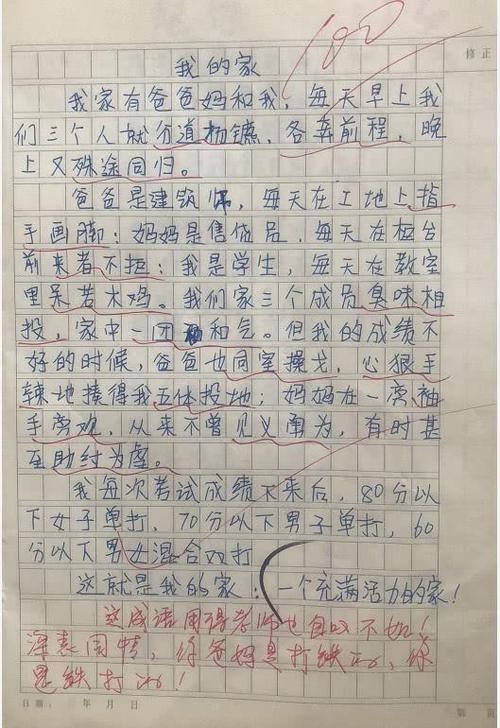 100
修正
我的家
我家有爸爸妈和我,每天早上我
们三个人就分道杨镳,各奔前程,晚
上又殊途同归。
爸爸是建筑师,每天在工地上指
手画脚;妈妈是售货员,每天在柜台
前来者不拒;我是学生,每天在教室
里呆若木鸡。我们家三个成员臭味相
投,家中一团和气。但我的成绩不
好的时候,爸爸也同室操戈,心狠手
辣地揍得我五体投地;妈妈在一离袖
手旁观,从来不曾见义勇为,有时甚
至助纣为虐。
我每次考试成绩下来后,80分以
下女子单打,70分以下男子单打,60
分以下男女混合双打
这就是我的家:一个充满活力的家!
这成语用得老师也自叹不如!
深表同情,你爸妈是打铁的,你
是铁打的!
日期: 年 月 日
第 页